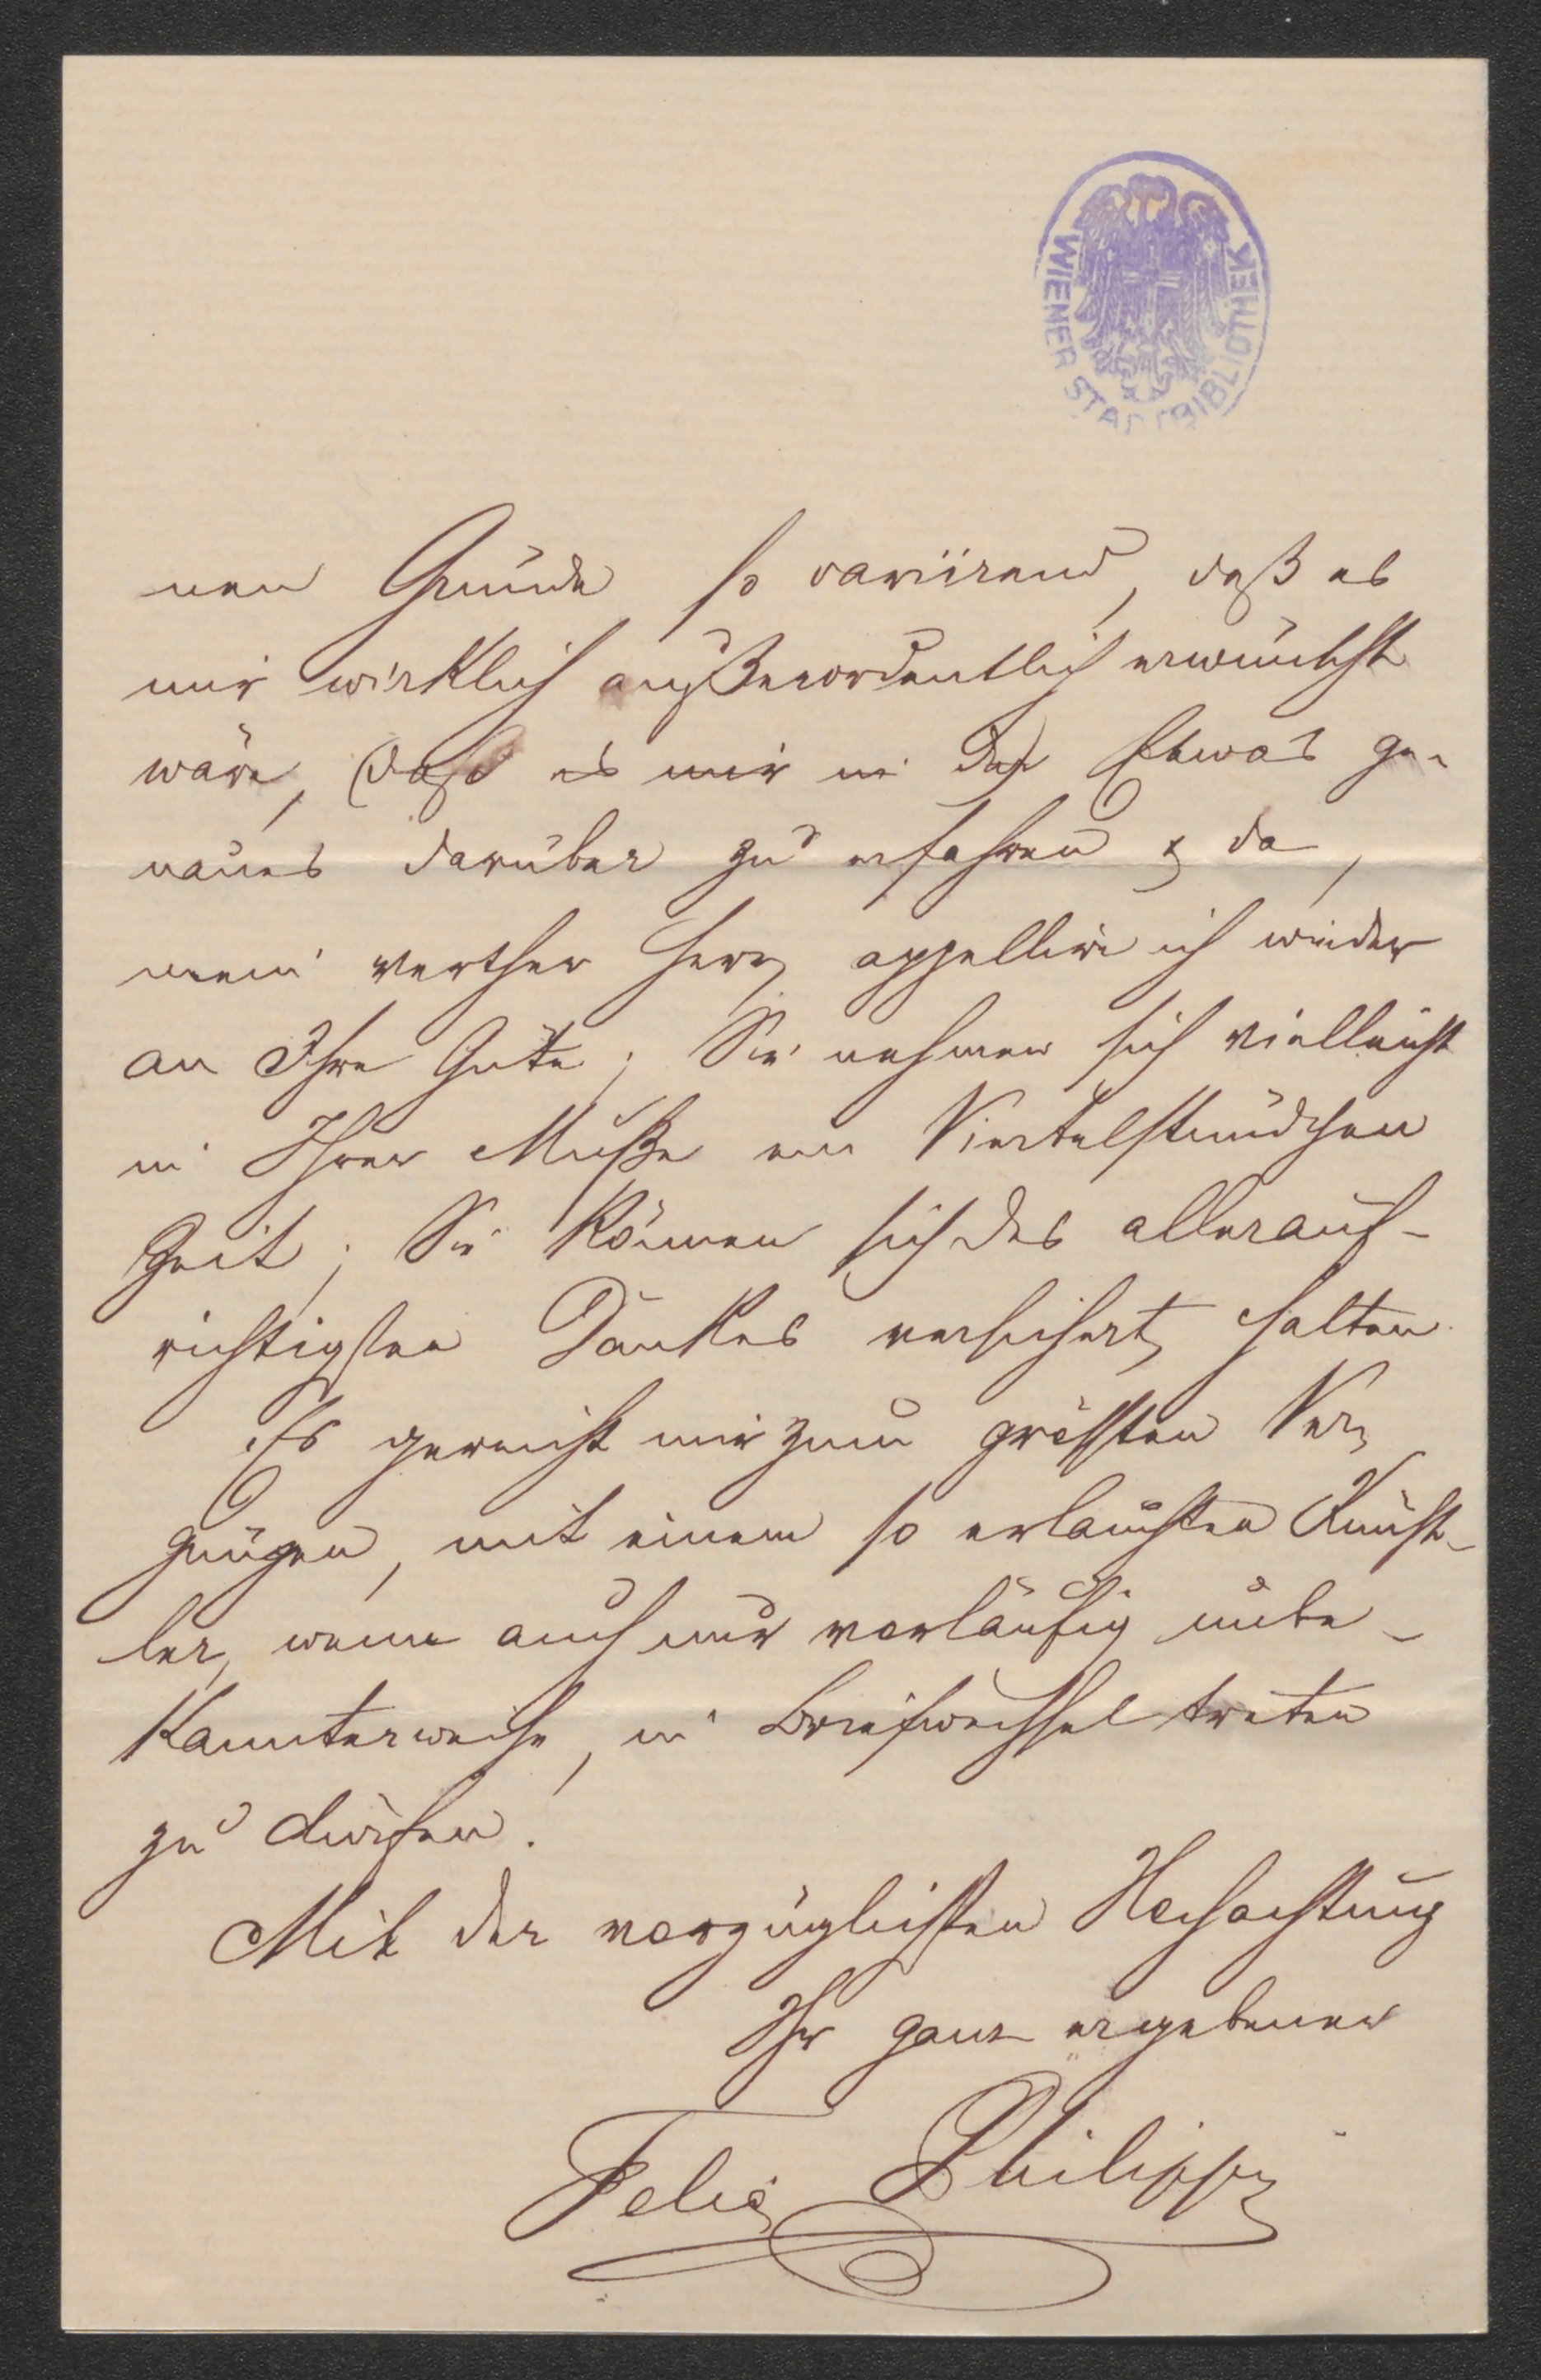 WIENER STADTBIBLIOTHEK
nen Gründe so variirend, daß es
mir wirklich außerordentlich erwünscht
wäre, daß es mir in der Etwas ge-
naues darüber zu erfahren & da,
mein werther Herr, appellire ich wieder
an Ihre Güte; Sie nehmen sich vielleicht
in Ihrer Muße ein Viertelstündchen
Zeit; Sie können sich des allerauf-
richtigsten Dankes versichert halten.
Es gereicht mir zum größten Ver-
gnügen, mit einem so erlauchten Künst-
ler, wenn auch nur vorläufig unbe-
kannterweise, in Briefwechsel treten
zu dürfen.
Mit der vorzüglichsten Hochachtung
Ihr ganz ergebener
Felix Philippi